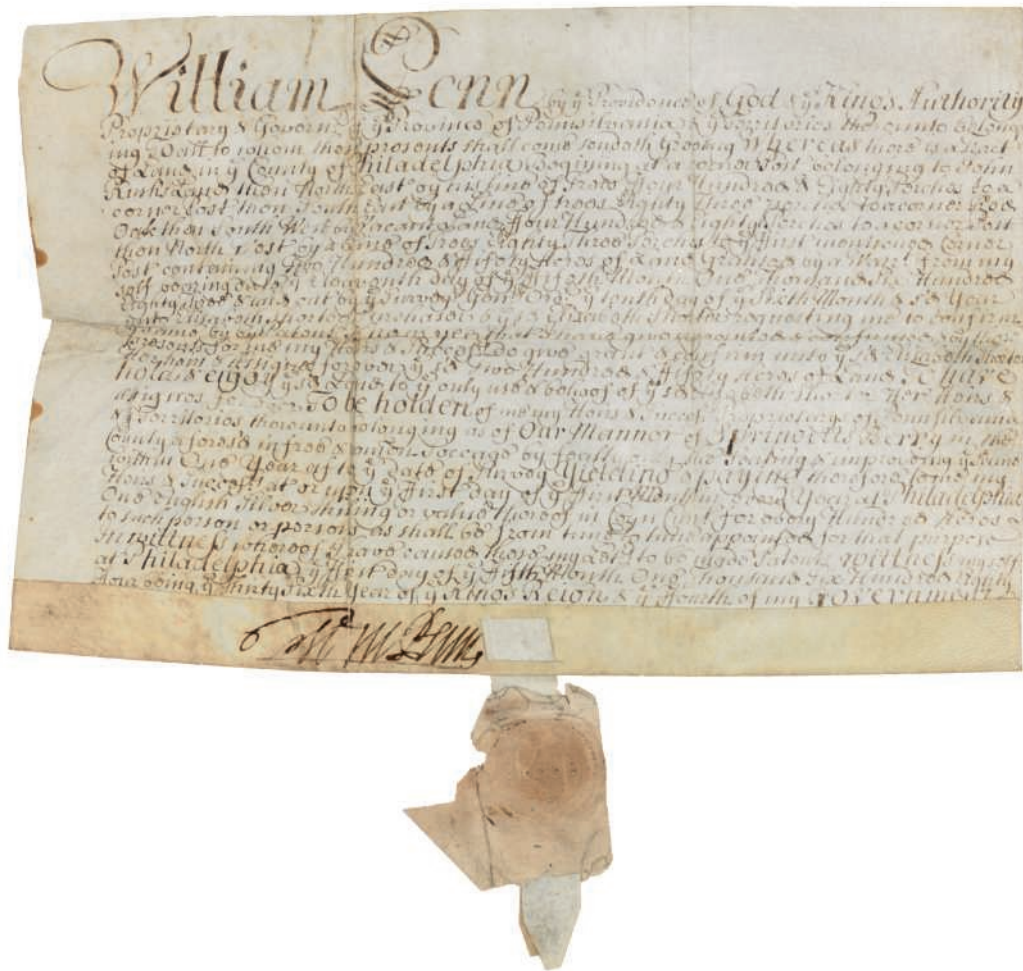 William Penn by yᵉ Providence of God & yᵉ Kings Authority
Proprietary & Governʳ of yᵉ Province of Pennsilvania & yᵉ Territories thereunto Belong
ing To all to whom these presents shall come sendeth Greeting Whereas there is a Tract
of Land in yᵉ County of Philadelphia Begining at a corner Post belonging to John
Land then North East by his line of Trees ffour Hundred & Eighty Perches to a
corner Post then South East by a Line of Trees Eighty Three Perches to a corner
Oak then South West by vacant Land ffour Hundred & Eighty Perches to a corner Post
then North West by a Line of Trees Eighty Three Perches to yᵉ first mentioned Corner
Post containing Two Hundred & ffifty Acres of Land Granted by a Warrᵗ from my
self bearing date yᵉ Eleventh day of yᵉ ffifth Month One Thousand Six Hundred
Eighty & laid out by yᵉ Survey Genˡˢ Order yᵉ tenth day of yᵉ Sixth Month & sᵈ Year
unto Elizabeth Shorter Purchaser & yᵉ sᵈ Elizabeth Shorter requesting me to confirm
yᵉ same by Patent Know yee that I have given granted & confirmed & by these
presents for me my Heirs & Successʳˢ Do give grant & confirm unto yᵉ sᵈ Elizabeth Shorter
Her Heirs & Assignes for ever yᵉ sᵈ Two Hundred & ffifty Acres of Land To Have
hold & enjoy yᵉ sᵈ Land to yᵉ only use & behoof of yᵉ sᵈ Elizabeth Shorter Her Heirs &
Assignes for ever To be holden of me my Heirs & Successʳˢ Proprietarys of Pennsilvania
& Territories thereunto belonging as of Our Mannor of Springettsberry in the
County aforesᵈ in free & com̄on Soccage by fealty only Seating & improving yᵉ same
within One Year after yᵉ date of Yielding & paying therefore to me my
Heirs & Successʳˢ at or upon yᵉ First day of yᵉ first Month in every Year at Philadelphia
One english Silver shilling or value thereof in Coyn Currᵗ for every Hundred Acres
to such person or persons as shall be from time to time appointed for that purpose
In witness whereof I have caused these my Letᵗˢ to be made Patent witness my self
at Philadelphia yᵉ first day of yᵉ ffifth Month One Thousand Six Hundred Eighty
ffour being yᵉ Thirty Sixth Year of yᵉ Kings Reign & yᵉ ffourth of my Government
Wm Penn